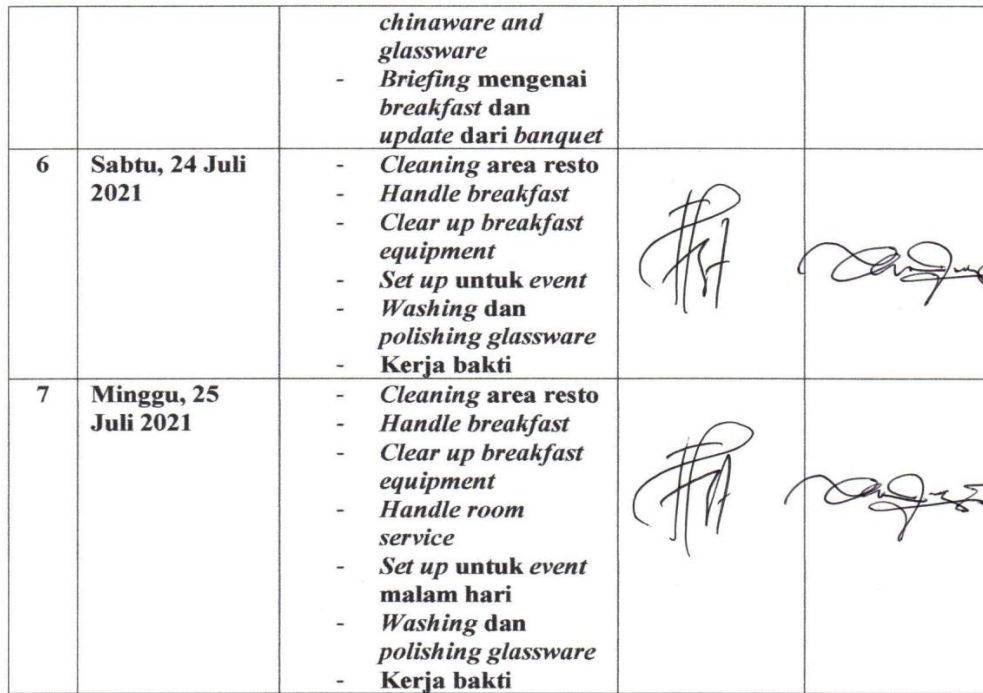 chinaware and
glassware
- Briefing mengenai
breakfast dan
update dari banquet
6 Sabtu, 24 Juli
2021
- Cleaning area resto
- Handle breakfast
- Clear up breakfast
equipment
- Set up untuk event
- Washing dan
polishing glassware
- Kerja bakti
7 Minggu, 25
Juli 2021
- Cleaning area resto
- Handle breakfast
- Clear up breakfast
equipment
- Handle room
service
- Set up untuk event
malam hari
- Washing dan
polishing glassware
- Kerja bakti